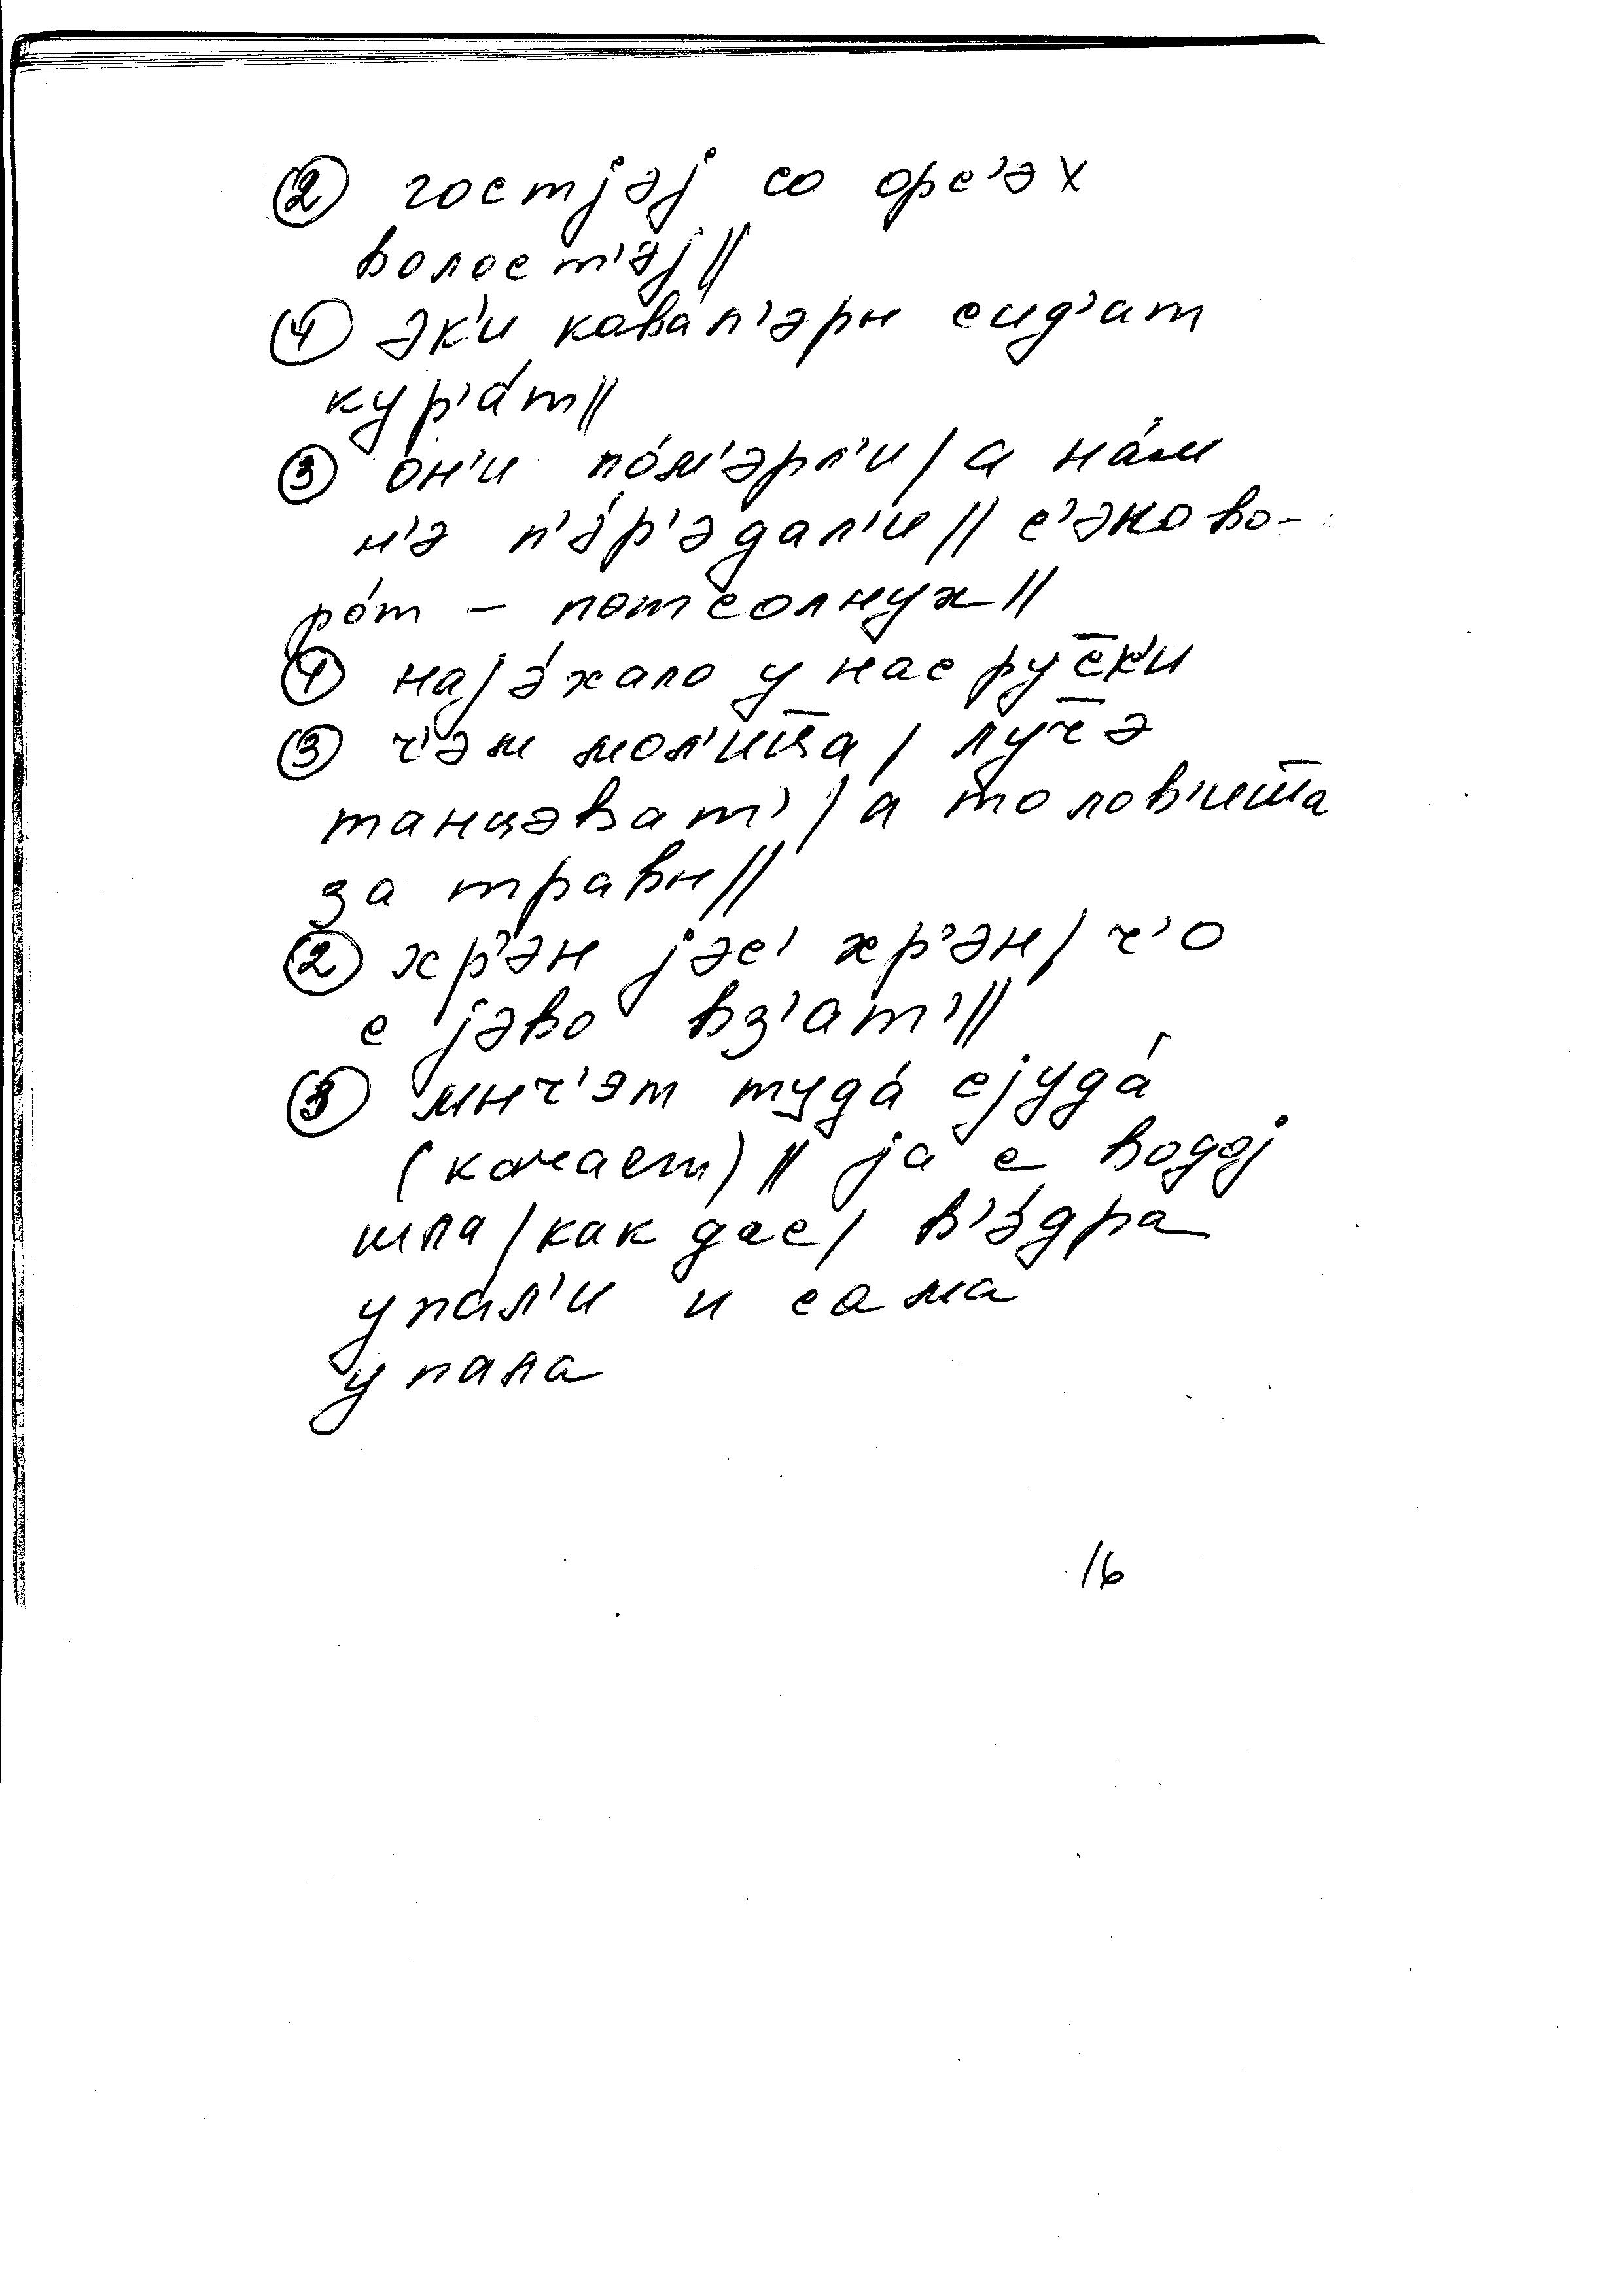 ② гостjэj со орс'эх
волост'эj||
④ эк'и кавал'эры сид'ат
кур'áт||
③ óн'и пóм'эрл'и/ а нáм
н'э п'э́р'эдал'и|| с'эково-
рóт – потсолнух||
④ наjэ́хало у нас рус̅к'и
③ ч'эм мол'иц̅а/ луч̅э
танцэват'/ а то лов'ит̅а
за травы||
② хр'эн jэс' хр'эн/ ч'о
с jэво вз'ат'||
③ мыч'эт тудá сjудá
(качает)|| jа с водоj
шла/ как дас/ в'э́дра
упáл'и и сама
упала
16